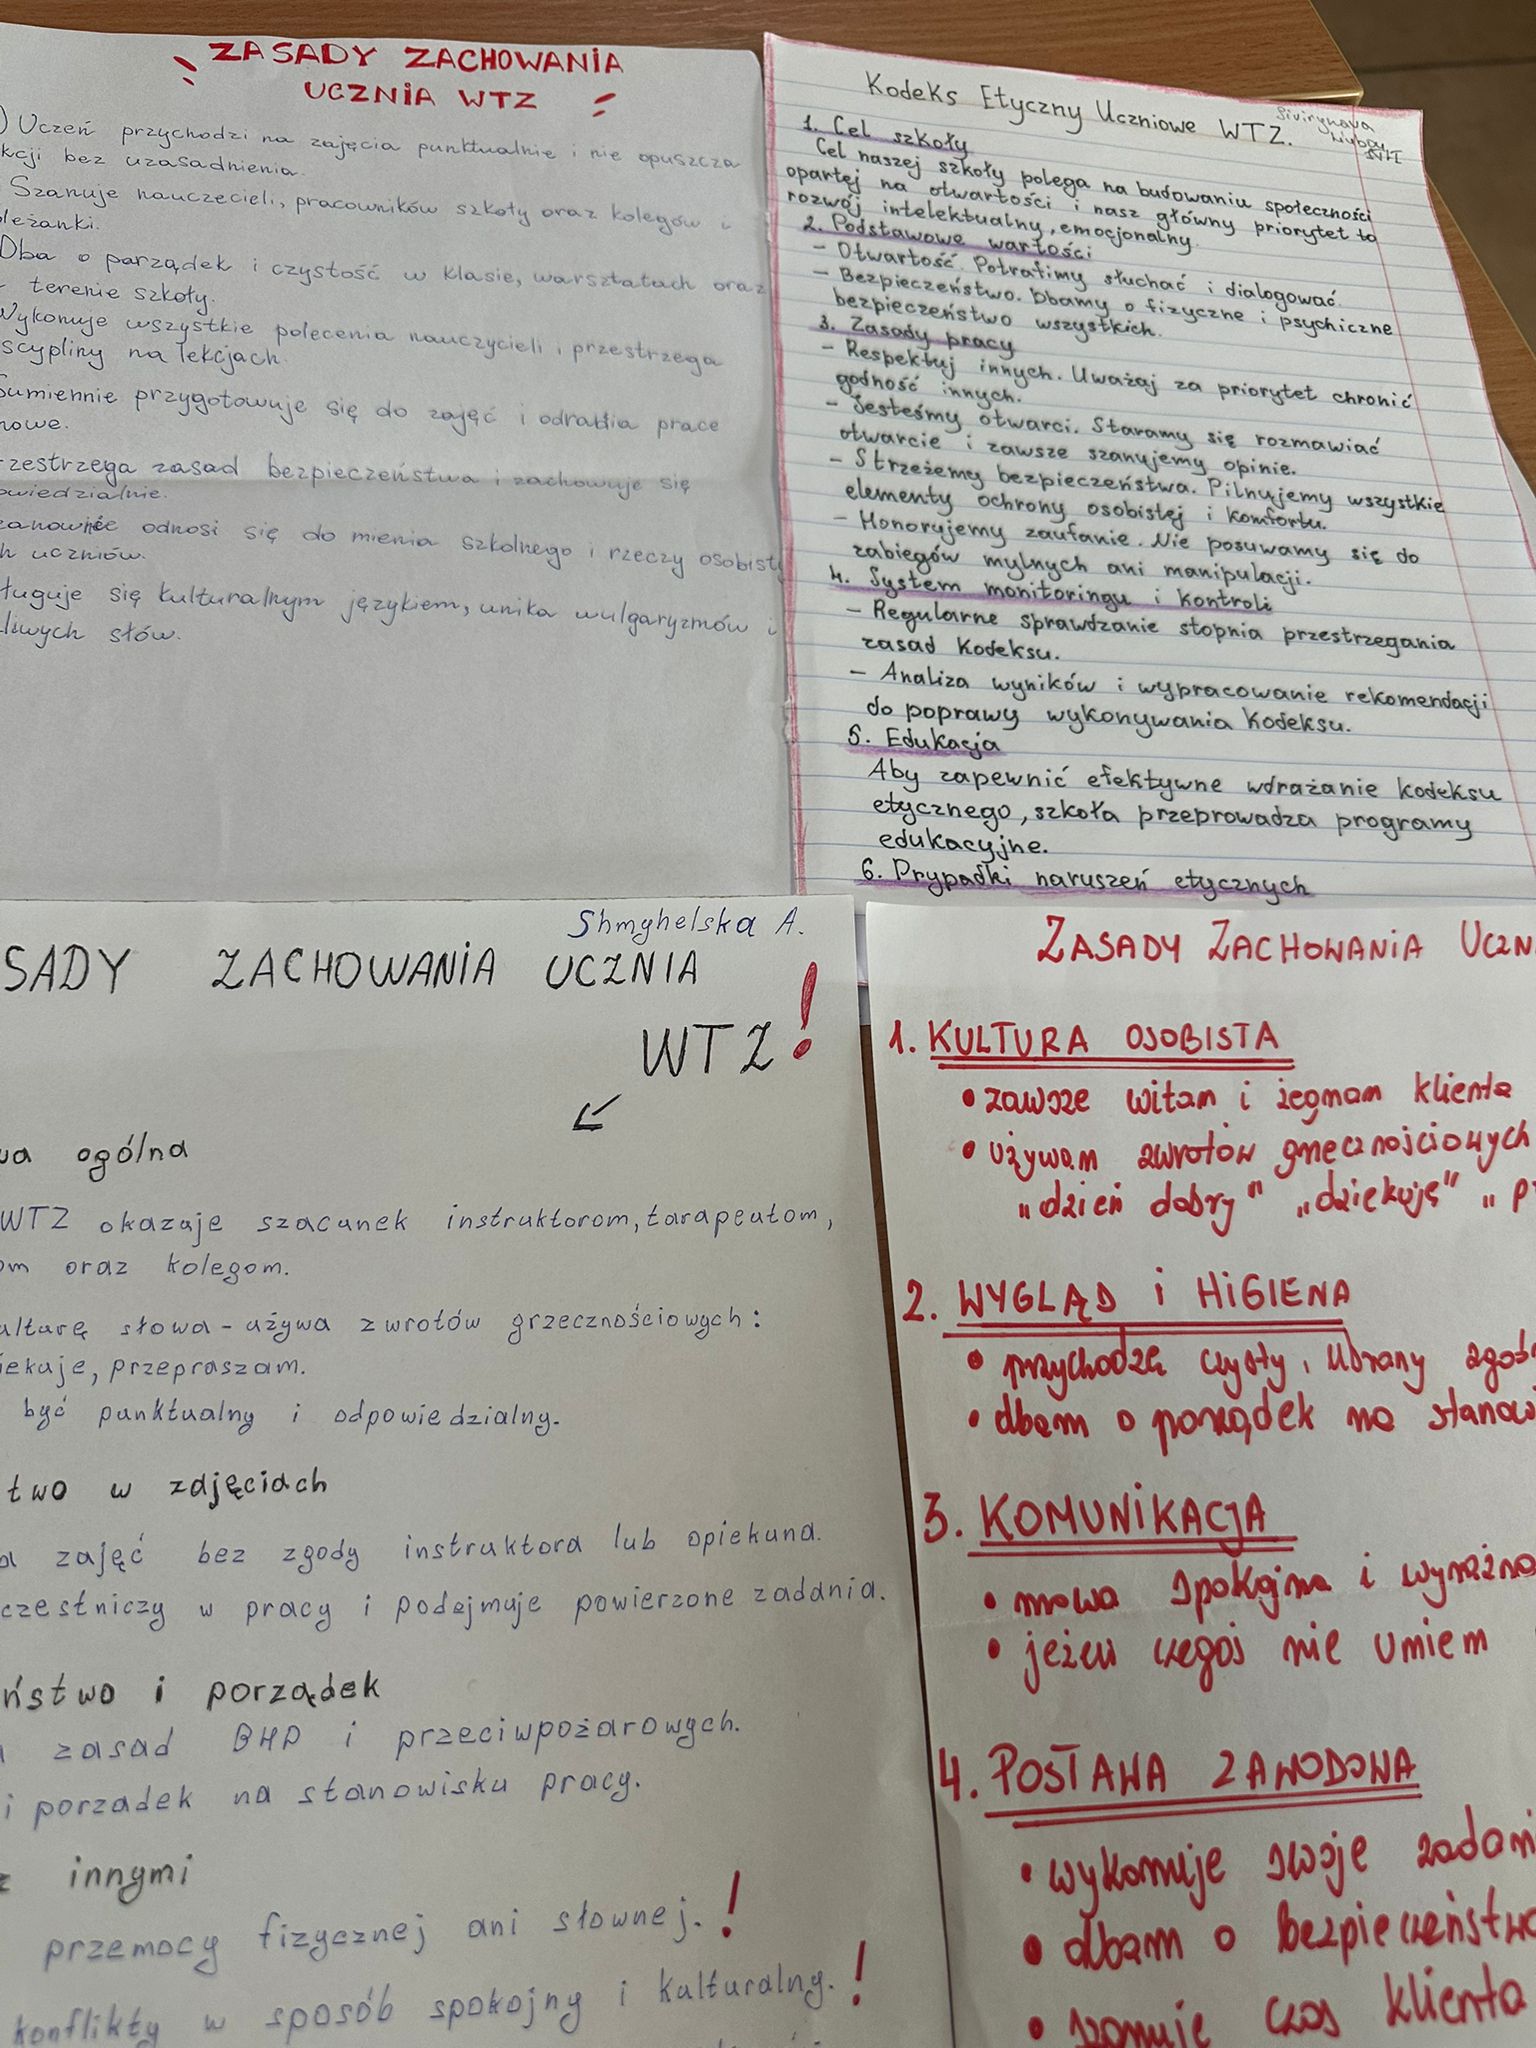 ZASADY ZACHOWANIA
UCZNIA WTZ
) Uczeń przychodzi na zajęcia punktualnie i nie opuszcza
kcji bez uzasadnienia.
Szanuje nauczecieli, pracowników szkoły oraz kolegów i
leżanki.
Dba o parządek i czystość w klasie, warsztatach oraz
terenie szkoły.
Wykonuje wszystkie polecenia nauczycieli i przestrzega
scypliny na lekcjach.
Sumiennie przygotowuje się do zajęć i odrabia prace
mowe.
rzestrzega zasad bezpieczeństwa i zachowuje się
owiedzialnie.
zanownie odnosi się do mienia szkolnego i rzeczy osobisty
h uczniów.
ługuje się kulturalnym językiem, unika wulgaryzmów i
liwych słów.
Kodeks Etyczny Uczniowe WTZ.
1. Cel szkoły
Cel naszej szkoły polega na budowaniu społeczności
opartej na otwartości i nasz główny priorytet to
rozwój intelektualny, emocjonalny.
2. Podstawowe wartości
- Otwartość. Potrafimy słuchać i dialogować.
- Bezpieczeństwo. Dbamy o fizyczne i psychiczne
bezpieczeństwo wszystkich.
3. Zasady pracy
- Respektuj innych. Uważaj za priorytet chronić
godność innych.
- Jesteśmy otwarci. Staramy się rozmawiać
otwarcie i zawsze szanujemy opinie.
- Strzeżemy bezpieczeństwa. Pilnujemy wszystkie
elementy ochrony osobistej i komfortu.
- Honorujemy zaufanie. Nie posuwamy się do
zabiegów mylnych ani manipulacji.
4. System monitoringu i kontroli
- Regularne sprawdzanie stopnia przestrzegania
zasad Kodeksu.
- Analiza wyników i wypracowanie rekomendacji
do poprawy wykonywania Kodeksu.
5. Edukacja
Aby zapewnić efektywne wdrażanie kodeksu
etycznego, szkoła przeprowadza programy
edukacyjne.
6. Prypadki naruszeń etycznych
Shmyhelska A.
SADY ZACHOWANIA UCZNIA
WTZ!
wa ogólna
WTZ okazuje szacunek instruktorom, tarapeutom,
om oraz kolegom.
ulturę słowa - używa zwrotów grzecznościowych:
iekuje, przepraszam.
być punktualny i odpowiedzialny.
two w zdjęciach
a zajęć bez zgody instruktora lub opiekuna.
czestniczy w pracy i podejmuje powierzone zadania.
ństwo i porządek
zasad BHP i przeciwpożarowych.
i porzadek na stanowisku pracy.
z innymi
przemocy fizycznej ani słownej.!
konflikty w sposób spokojny i kulturalny.!
ZASADY ZACHOWANIA UCZN
1. KULTURA OSOBISTA
• zawsze witam i żegnam klienta
• używam zwrotów grzecznościowych
„dzień dobry" „dziękuję" „p
2. WYGLĄD i HIGIENA
• przychodzę czysty, ubrany zgod
• dbam o porządek na stanow
3. KOMUNIKACJA
• mowa spokojna i wyraźna
• jeżeli czegoś nie umiem
4. POSTAWA ZAWODOWA
• wykonuje swoje zadan
• dbam o bezpieczeństwo
• szanuje czas klienta